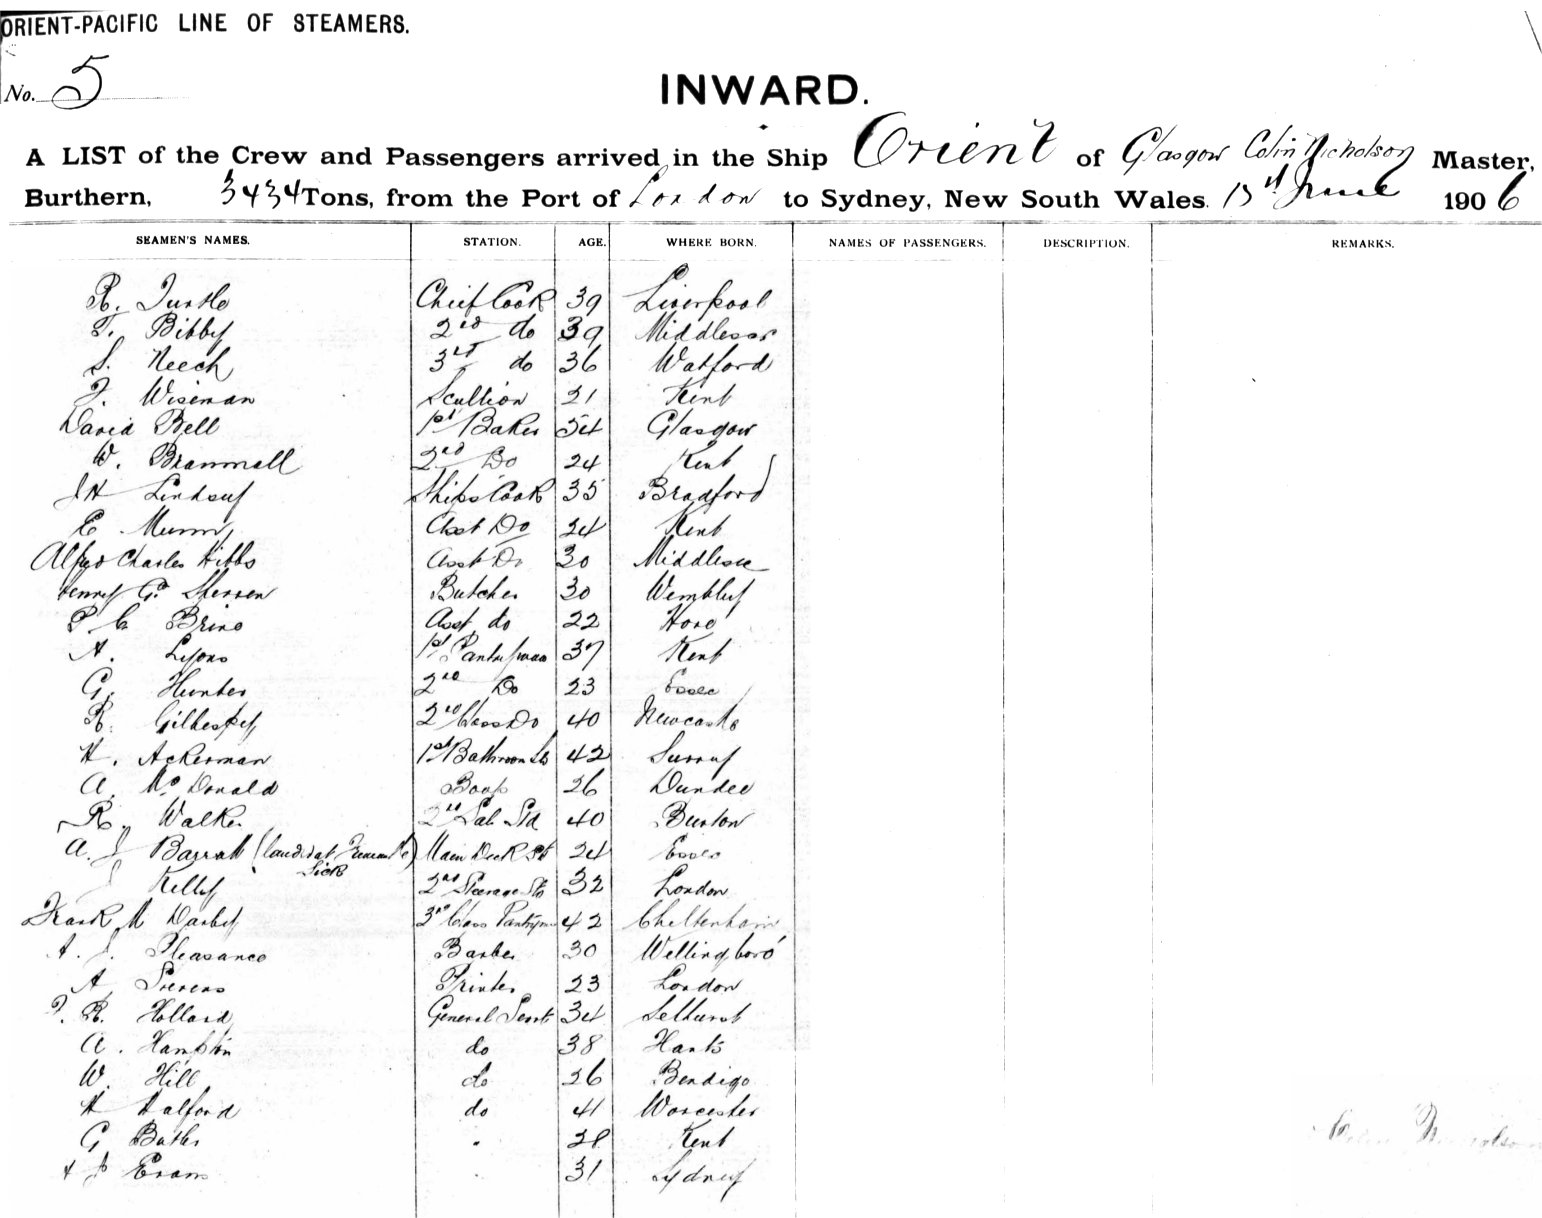 ORIENT-PACIFIC LINE OF STEAMERS.
No. 5
INWARD.
A LIST of the Crew and Passengers arrived in the Ship Orient of Glasgow Colin Nicholson Master,
Burthern, 3434 Tons, from the Port of London to Sydney, New South Wales. June 1906
SEAMEN'S NAMES. STATION. AGE. WHERE BORN. NAMES OF PASSENGERS. DESCRIPTION. REMARKS.
R. Turtle Chief Cook 39 Liverpool
T. Bibby 2nd do 39 Middlesex
S. Neech 3rd do 36 Watford
F. Wiseman Scullion 21 Kent
David Bell 1st Baker 54 Glasgow
W. Brammall 2nd Do 24 Kent
JH Lindsey Ships Cook 35 Bradford
E Munn Asst Do 24 Kent
Alfred Charles Hibbs Asst Do 30 Middlesex
Henry G. Butcher 30 Wembley
P C Brine Asst do 22 Hove
A. Lyons 1st Pantryman 37 Kent
G. Hunter 2nd Do 23 Essex
R. Gillespey 2nd Class Do 40 Newcastle
H. Ackerman 1st Bathroom Std 42 Surrey
A. McDonald 26 Dundee
R. Walker 2nd Sal Std 40 Burton
A. J Barratt (landed at Fremantle) Main Deck Std 24 Essex
Sick
J Kelly 2nd Steerage Std 32 London
Frank M Darby 3rd Class Pantryman 42 Cheltenham
A. J. Pleasance Barber 30 Wellingboro'
A Stevens Printer 23 London
F. R. Hollard General Servt 34 Selhurst
A. Hampton do 38 Hants
W. Hill do 26 Bendigo
H Halford do 41 Worcester
G Butler " 28 Kent
J Evans " 31 Sydney
Colin Nicholson